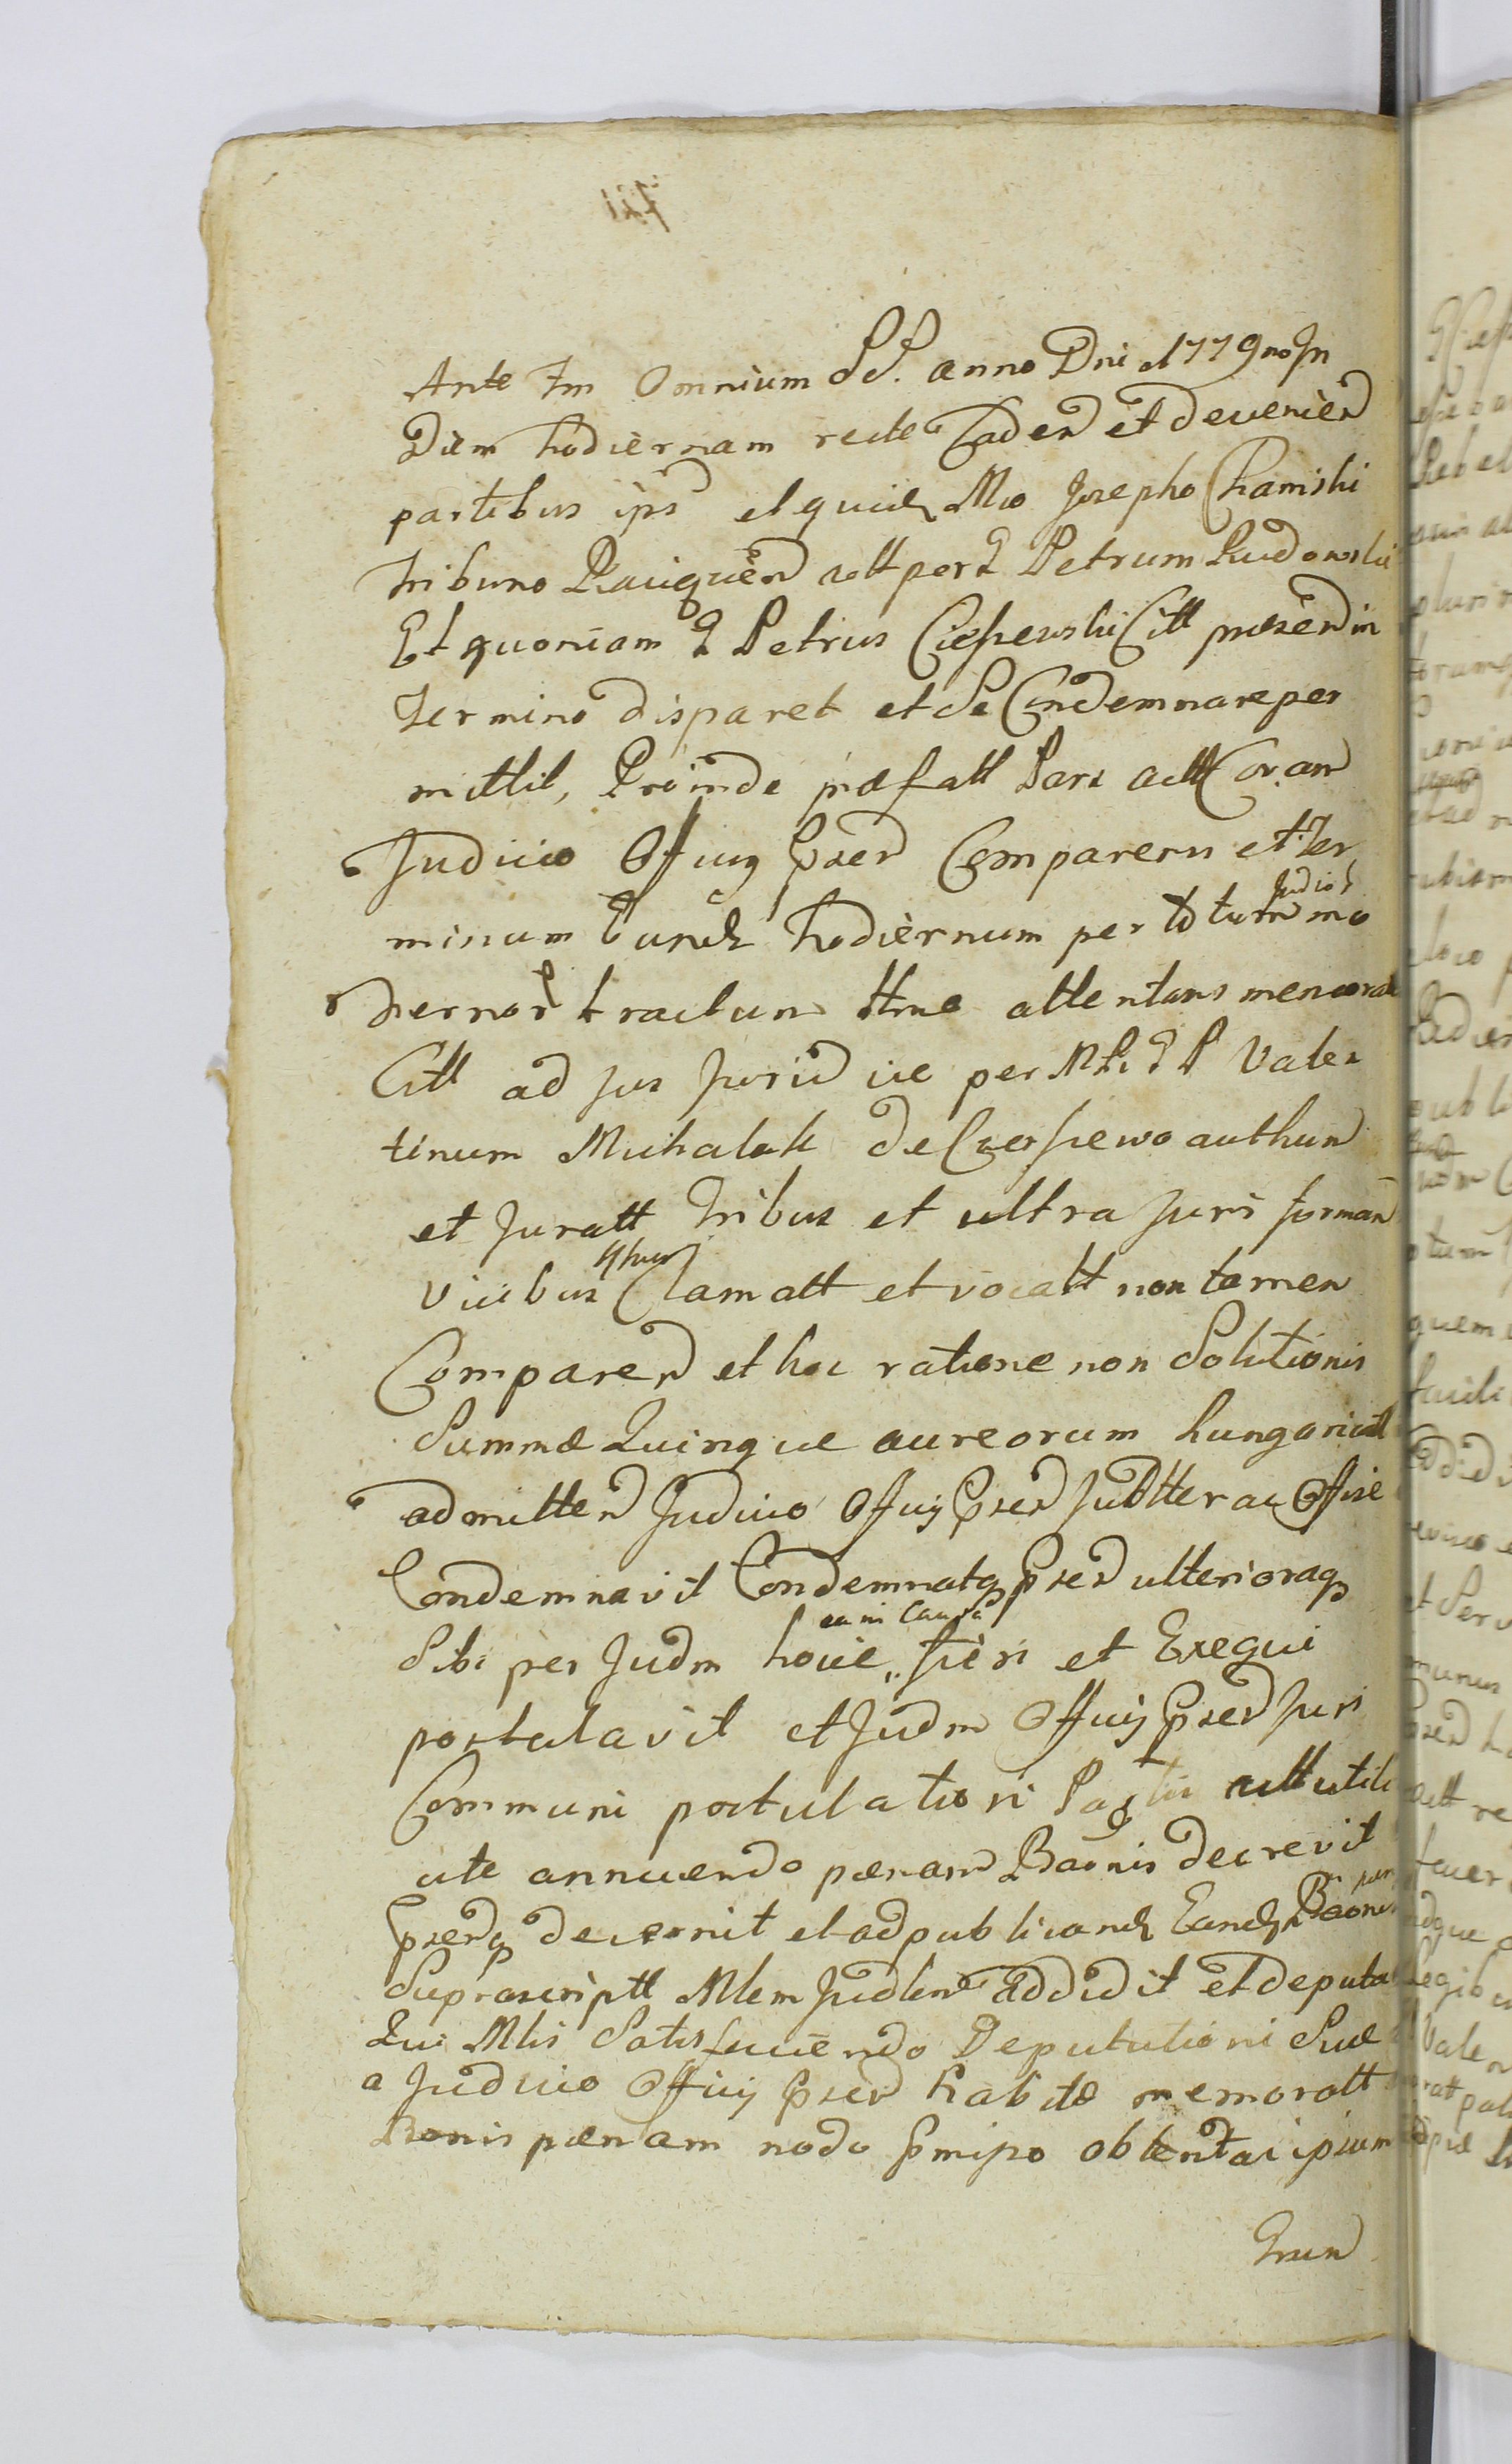 Ante Fm Omnium SS. anno Dni 1779no In
Diem hodiernam recte Caden et devenien
partibus ips et quidem Mco Josepho Chamski
tribuno Raciquen act per G Petrum Rudowski
Et quoniam G Petrus Ciepewski Citt presen in
Termino disparet et se Condemnare per
mittit, Proinde præfatt Pars actt Coram
Judicio Officij Presen Comparens et Ter
minum Eundem hodiernum per totum mo
Judior
dernor tractum ttme attentans memoratt
Citt ad jus Juridice per Mlem G P Valen
tinum Michalak de authen
et Juratt Tribus et ultra Juris formam
Vicibus Clamatt et vocatt non tamen
Comparen et hoc ratione non Solutionis
Summæ Quinque aureorum hungarical
admitten Judicio Officij Presen Judtter ac Offise
Condemnavit Condemnatq Presen ulterioraq
Sibi per Judm hocce fieri et Exequi
ea in Causa
postulavit et Judm Officij Presen Juri
Communi postulationi Partis actt utili
ute annuendo pænam Baonis decrevit
Presenq decernit et ad publicandem Eandem Baonis
Suprascriptt Mlem Judlem addidit et deputa
Qui Mlis Satisfaciendo Deputationi Suæ
a Judicio Officij Presen habitæ memoratt
Bonis pænam modo Pmisso obtentæ ipsum